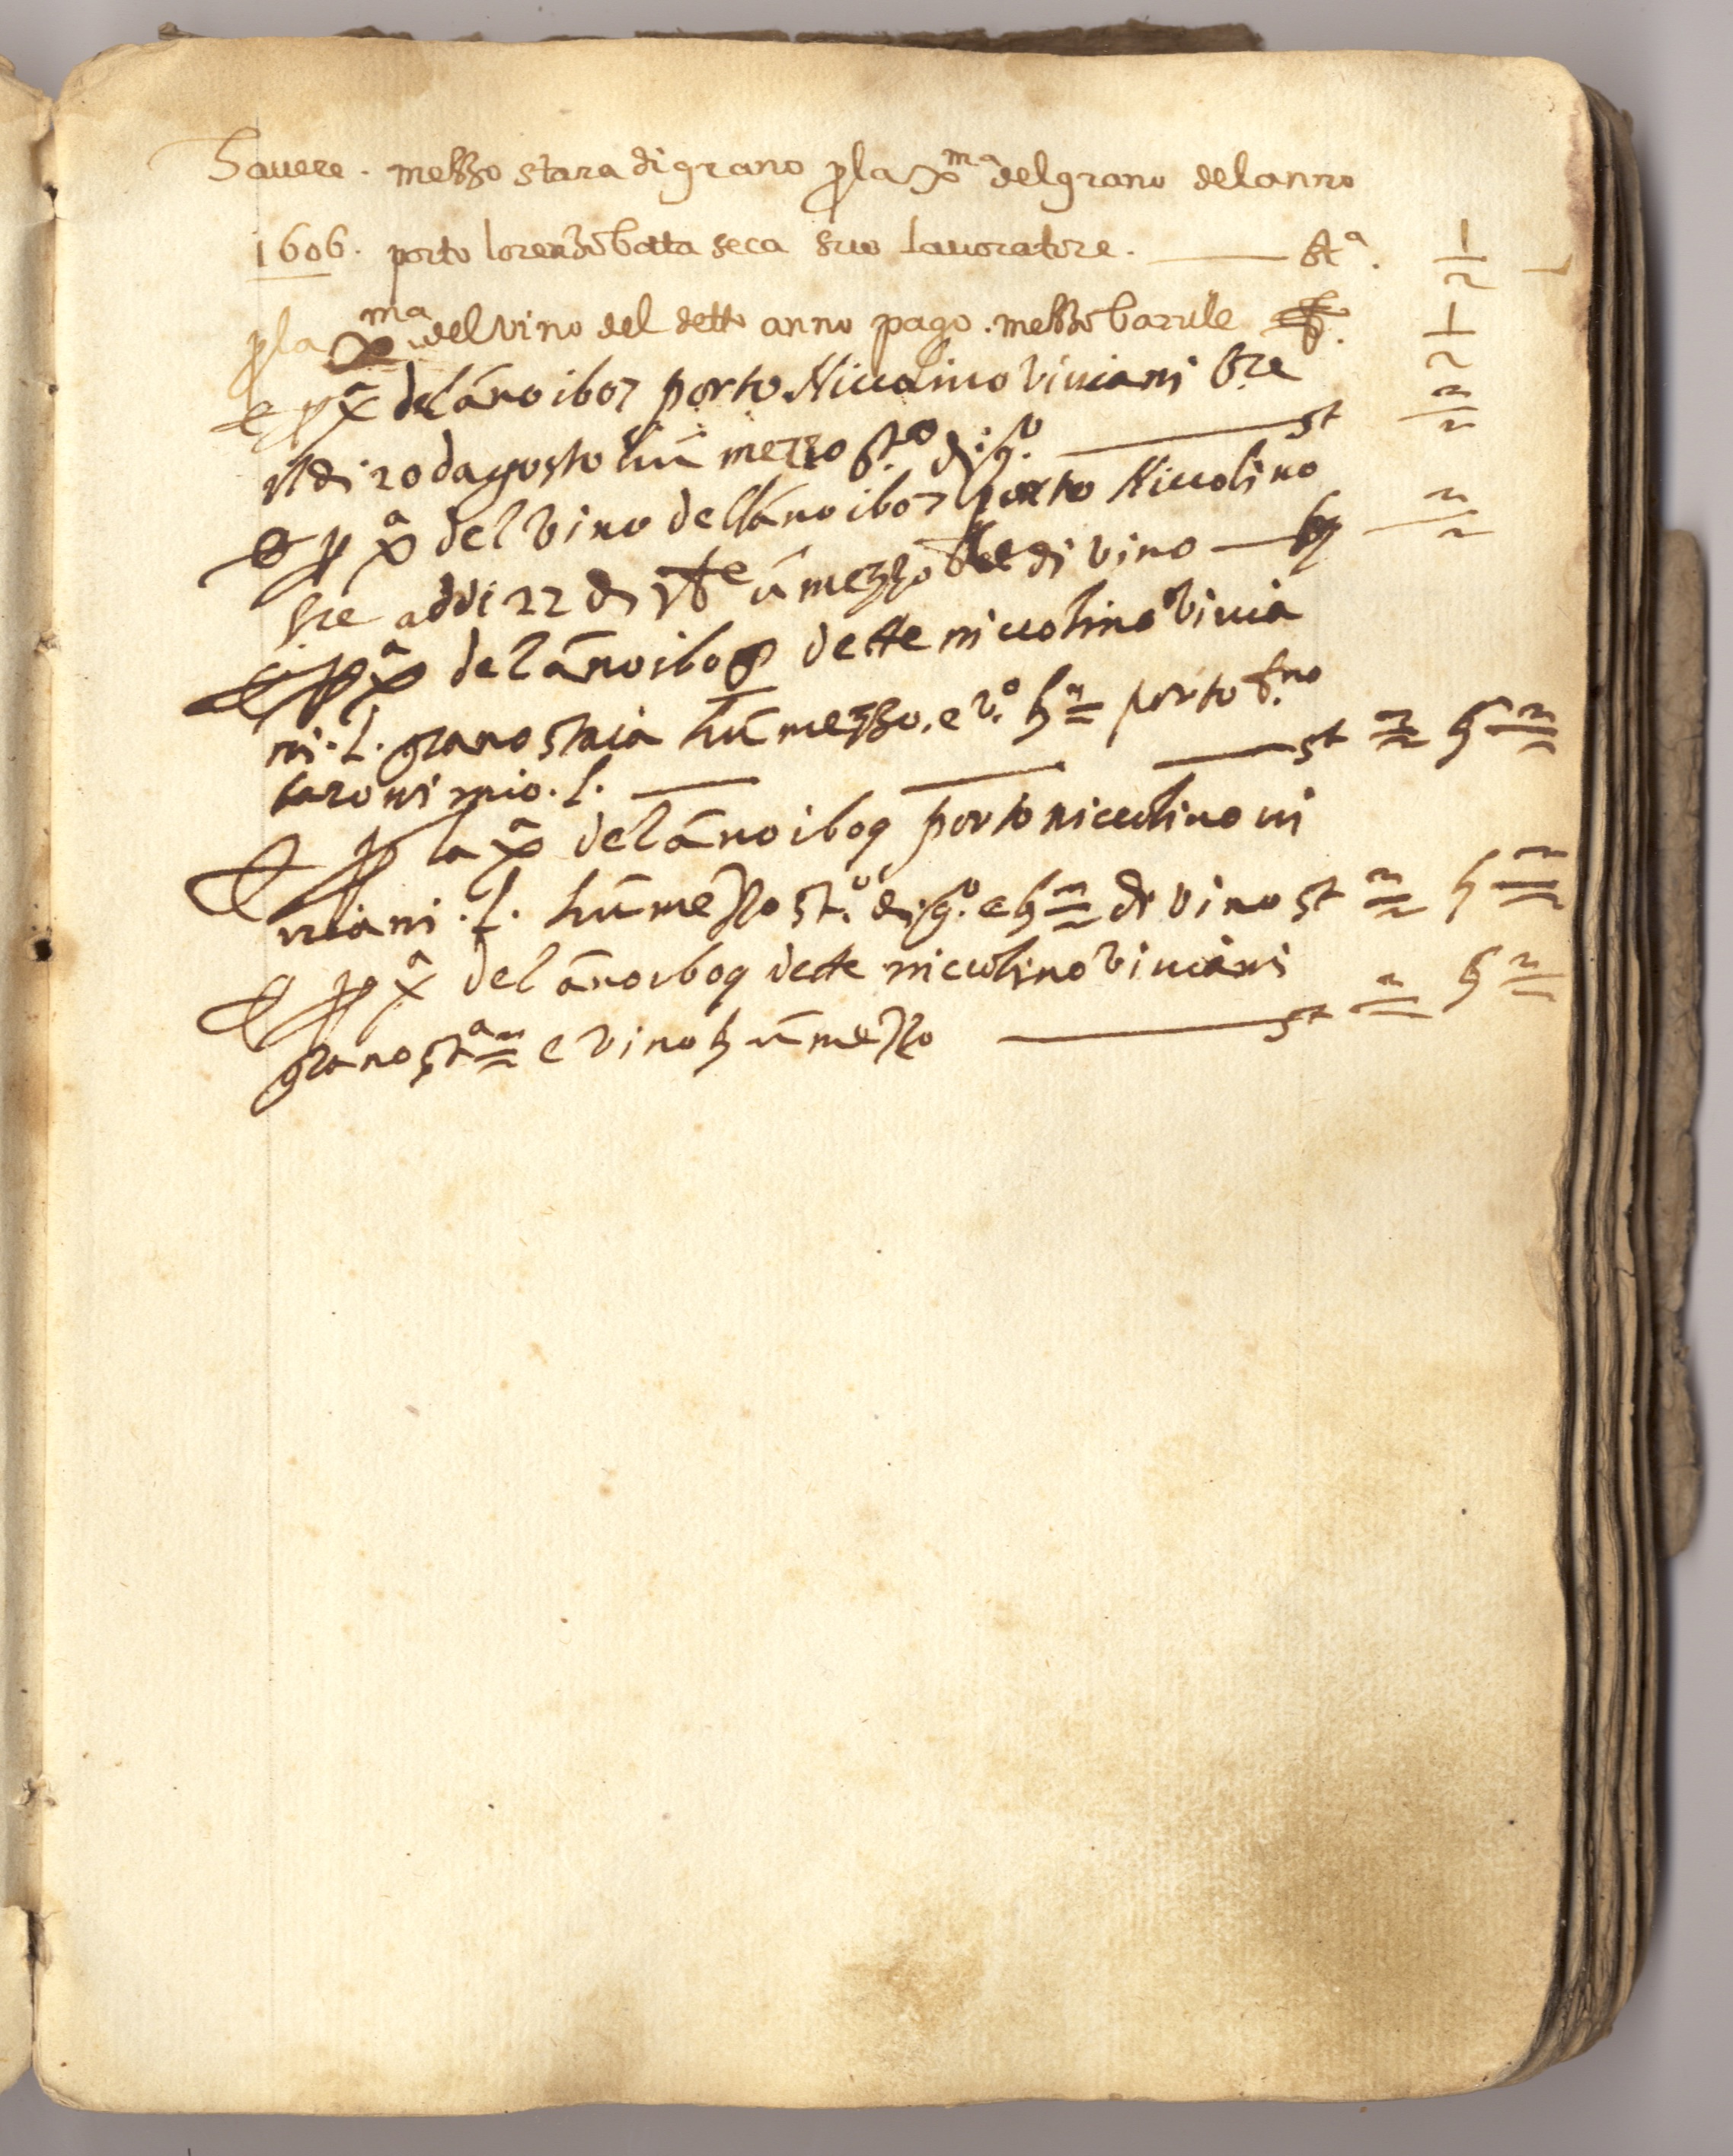 Havere. mezzo stara di grano p la Xma del grano del anno
1606. porto lorenzo batta seca suo lavoratore. sta. 1/2
p la Xma del vino del detto anno pago. mezzo barille 1/2
e p Xa del āno 1607 porto Niccolino viviani
di 20 dagosto hū mezzo sto di go. st 1/2
E p Xa del vino dellāno 1607 porto Niccolino
addi 22 di ū mezzo di vino 1/2
E p Xa del āno 1608 dette niccolino vivia
ni. L. grano staia hū mezzo. e vo. b 1/2 porto
baroni mio. L. st 1/2 b 1/2
E p la Xa del āno 1609 porto niccolino vi
viani. L. hū mezzo sto. di go. e b 1/2 di vino st 1/2 b 1/2
E p Xa del āno 1609 dette niccolino viviani
grano sta 1/2 e vino b ū mezzo st 1/2 b 1/2